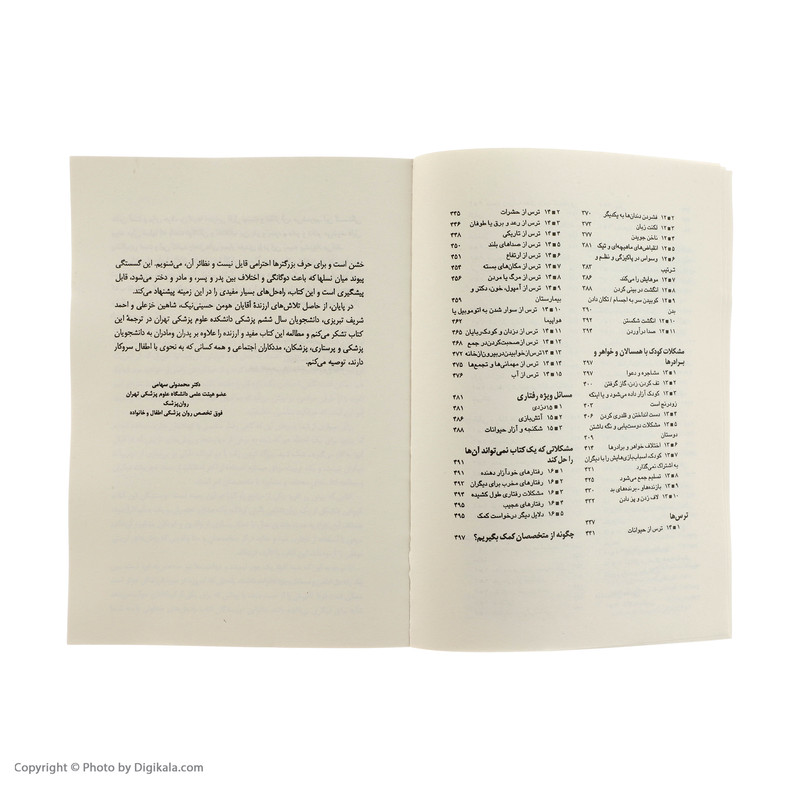 ۱۲■۲ فشردن دندان‌ها به یکدیگر ۳۷۰
۱۲■۳ لکنت زبان ۳۷۳
۱۲■۴ ناخن جویدن ۳۷۷
۱۲■۵ انقباض‌های ماهیچه‌ای و تیک ۳۸۱
۱۲■۶ وسواس در پاکیزگی و نظم و
ترتیب ۳۸۳
۱۲■۷ موهایش را می‌کند ۳۸۶
۱۲■۸ انگشت در بینی کردن ۳۸۸
۱۲■۹ کوبیدن سر به اجسام / تکان دادن
بدن ۳۹۰
۱۲■۱۰ انگشت شکستن ۳۹۲
۱۲■۱۱ صدا درآوردن ۳۹۴
مشکلات کودک با همسالان و خواهر و
برادرها ۳۹۷
۱۳■۱ مشاجره و دعوا ۳۹۷
۱۳■۲ تف کردن، زدن، گاز گرفتن ۴۰۰
۱۳■۳ کودک آزار داده می‌شود و یا اینکه
زودرنج است ۴۰۳
۱۳■۴ دست انداختن و قلدری کردن ۴۰۶
۱۳■۵ مشکلات دوست‌یابی و نگه داشتن
دوستان ۴۰۹
۱۳■۶ اختلاف خواهر و برادرها ۴۱۴
۱۳■۷ کودک اسباب‌بازی‌هایش را با دیگران
به اشتراک نمی‌گذارد ۴۲۱
۱۳■۸ تسلیم جمع می‌شود ۴۲۵
۱۳■۹ بازنده‌ها و برنده‌های بد ۴۳۰
۱۳■۱۰ لاف زدن و پز دادن ۴۳۲
ترس‌ها ۴۳۷
۱۴■۱ ترس از حیوانات ۴۴۱
۱۴■۲ ترس از حشرات ۴۴۵
۱۴■۳ ترس از رعد و برق یا طوفان ۴۴۶
۱۴■۴ ترس از تاریکی ۴۴۸
۱۴■۵ ترس از صداهای بلند ۴۵۰
۱۴■۶ ترس از ارتفاع ۴۵۱
۱۴■۷ ترس از مکان‌های بسته ۴۵۴
۱۴■۸ ترس از مرگ یا مردن ۴۵۶
۱۴■۹ ترس از آمپول، خون، دکتر و
بیمارستان ۴۵۹
۱۴■۱۰ ترس از سوار شدن به اتومبیل یا
هواپیما ۴۶۲
۱۴■۱۱ ترس از دزدان و کودک‌ربایان ۴۶۵
۱۴■۱۲ ترس از صحبت کردن در جمع ۴۶۸
۱۴■۱۳ ترس از خوابیدن در بیرون از خانه ۴۷۲
۱۴■۱۴ ترس از مهمانی‌ها و تجمع‌ها ۴۷۵
۱۴■۱۵ ترس از آب ۴۷۶
مسائل ویژه رفتاری ۴۸۱
۱۵■۱ دزدی ۴۸۱
۱۵■۲ آتش‌بازی ۴۸۶
۱۵■۳ شکنجه و آزار حیوانات ۴۸۸
مشکلاتی که یک کتاب نمی‌تواند آن‌ها
را حل کند ۴۹۱
۱۶■۱ رفتارهای خودآزار دهنده ۴۹۱
۱۶■۲ رفتارهای مخرب برای دیگران ۴۹۳
۱۶■۳ مشکلات رفتاری طول کشیده ۴۹۴
۱۶■۴ رفتارهای عجیب ۴۹۵
۱۶■۵ دلایل دیگر درخواست کمک ۴۹۵
چگونه از متخصصان کمک بگیریم؟ ۴۹۷
خشن است و برای حرف بزرگترها احترامی قایل نیست و نظائر آن، می‌شنویم. این گسستگی
پیوند میان نسلها که باعث دوگانگی و اختلاف بین پدر و پسر، و مادر و دختر می‌شود، قابل
پیشگیری است و این کتاب، راه‌حل‌های بسیار مفیدی را در این زمینه پیشنهاد می‌کند.
در پایان، از حاصل تلاش‌های ارزندهٔ آقایان هومن حسینی‌نیک، شاهین خزعلی و احمد
شریف تبریزی، دانشجویان سال ششم پزشکی دانشکده علوم پزشکی تهران در ترجمهٔ این
کتاب تشکر می‌کنم و مطالعه این کتاب مفید و ارزنده را علاوه بر پدران و مادران به دانشجویان
پزشکی و پرستاری، پزشکان، مددکاران اجتماعی و همه کسانی که به نحوی با اطفال سروکار
دارند، توصیه می‌کنم.
دکتر محمدولی سهامی
عضو هیئت علمی دانشگاه علوم پزشکی تهران
روان‌پزشک
فوق تخصص روان پزشکی اطفال و خانواده
Copyright © Photo by Digikala.com